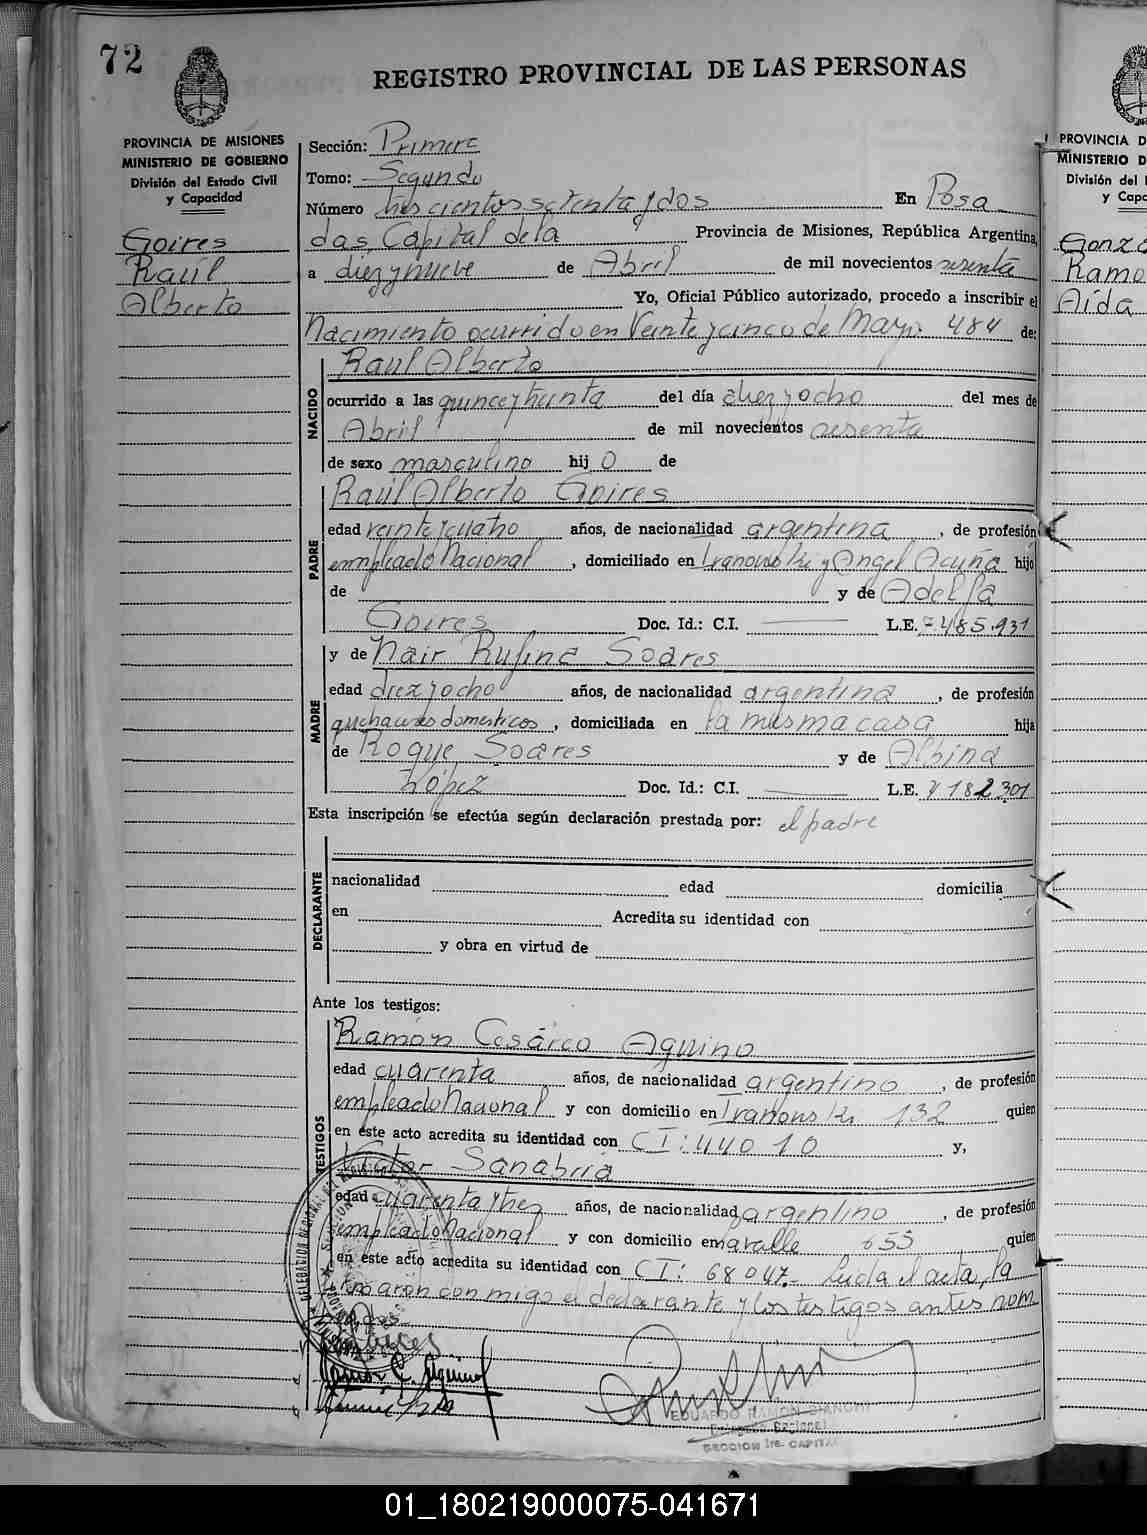 72
REGISTRO PROVINCIAL DE LAS PERSONAS
PROVINCIA DE MISIONES
MINISTERIO DE GOBIERNO
División del Estado Civil
y Capacidad
Goires
Raúl
Alberto
Sección: Primera
Tomo: Segundo
Número trescientos setenta y dos En Posa
das, Capital de la Provincia de Misiones, República Argentina,
a diez y nueve de Abril de mil novecientos sesenta
Yo, Oficial Público autorizado, procedo a inscribir el
Nacimiento ocurrido en Veinte y cinco de Mayo 484 de:
NACIDO
Raúl Alberto
ocurrido a las quince y treinta del día diez y ocho del mes de
Abril de mil novecientos sesenta
de sexo masculino hij o de
PADRE
Raúl Alberto Goires
edad veinte y cuatro años, de nacionalidad argentina, de profesión
empleado Nacional, domiciliado en y Angel Acuña hijo
de y de Adelfa
Goires Doc. Id.: C.I. L.E. 7.485.931
MADRE
y de Nair Rufina Soares
edad diez y ocho años, de nacionalidad argentina, de profesión
quehaceres domesticos, domiciliada en la misma casa hija
de Roque Soares y de Albina
López Doc. Id.: C.I. L.E. 182301
Esta inscripción se efectúa según declaración prestada por: el padre
DECLARANTE
nacionalidad edad domicilia
en Acredita su identidad con
y obra en virtud de
Ante los testigos:
TESTIGOS
Ramón Cesáreo Aquino
edad cuarenta años, de nacionalidad argentino, de profesión
empleado Nacional y con domicilio en 132 quien
en este acto acredita su identidad con CI: 44010 y,
Victor Sanabria
edad cuarenta y tres años, de nacionalidad argentino, de profesión
empleado Nacional y con domicilio en 655 quien
en este acto acredita su identidad con CI: 68047.- Leida el acta, la
firmaron conmigo el declarante y los testigos antes nom
Ramón C. Aquino
EDUARDO RAMON
SECCION 1ra. CAPITAL
PROVINCIA D
MINISTERIO D
División del
y Capa
Gonzá
Ramo
Aída
01_180219000075-041671